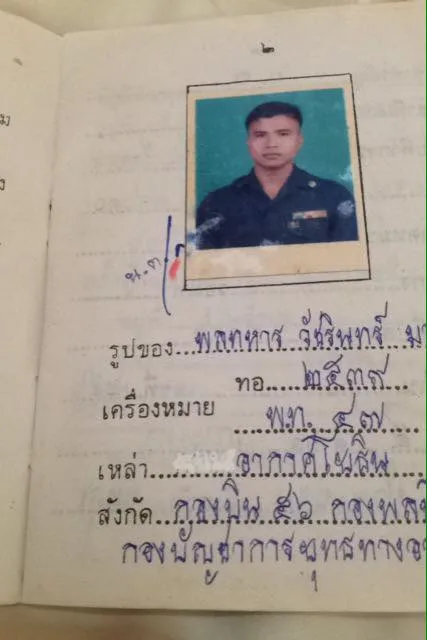 ๒
น.๓.
รูปของ พลทหาร วัชรินทร์
ทอ. ๒๕๓๙
เครื่องหมาย พท. ๔๗
เหล่า อากาศโยธิน
สังกัด กองบิน ๕๖
กองบัญชาการยุทธทางอ